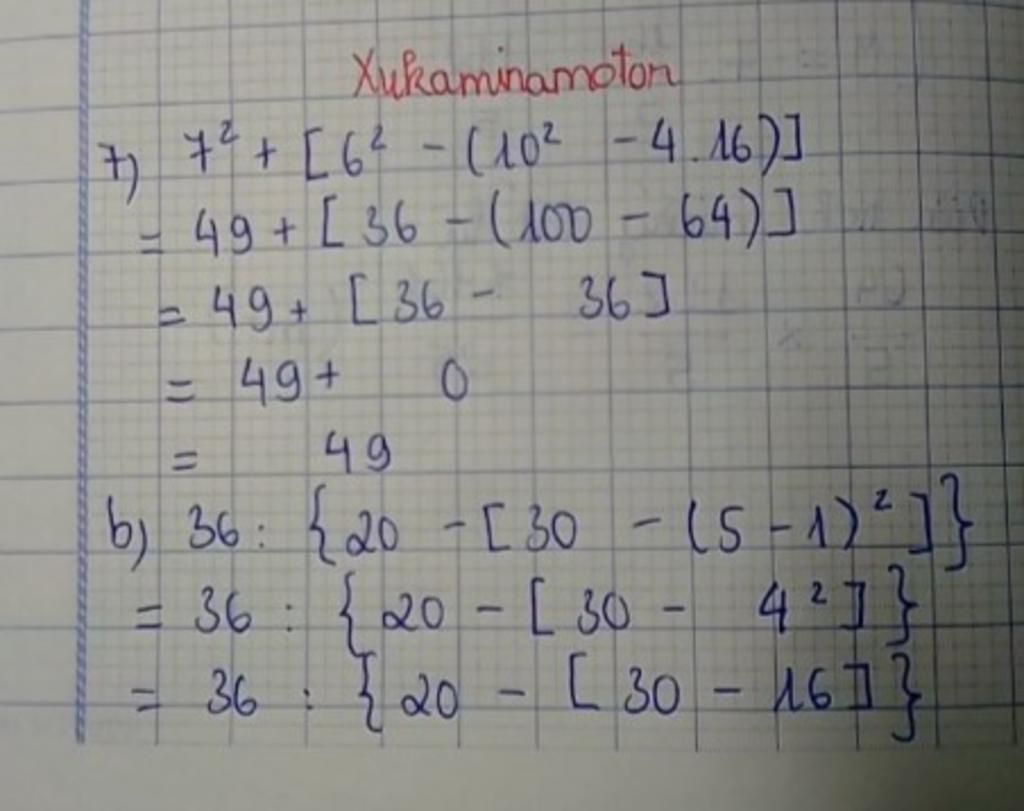 Xukaminamoton
7) 7² + [6² - (10² - 4.16)]
= 49 + [36 - (100 - 64)]
= 49 + [36 - 36]
= 49 + 0
= 49
b) 36 : {20 - [30 - (5 - 1)²]}
= 36 : {20 - [30 - 4²]}
= 36 : {20 - [30 - 16]}